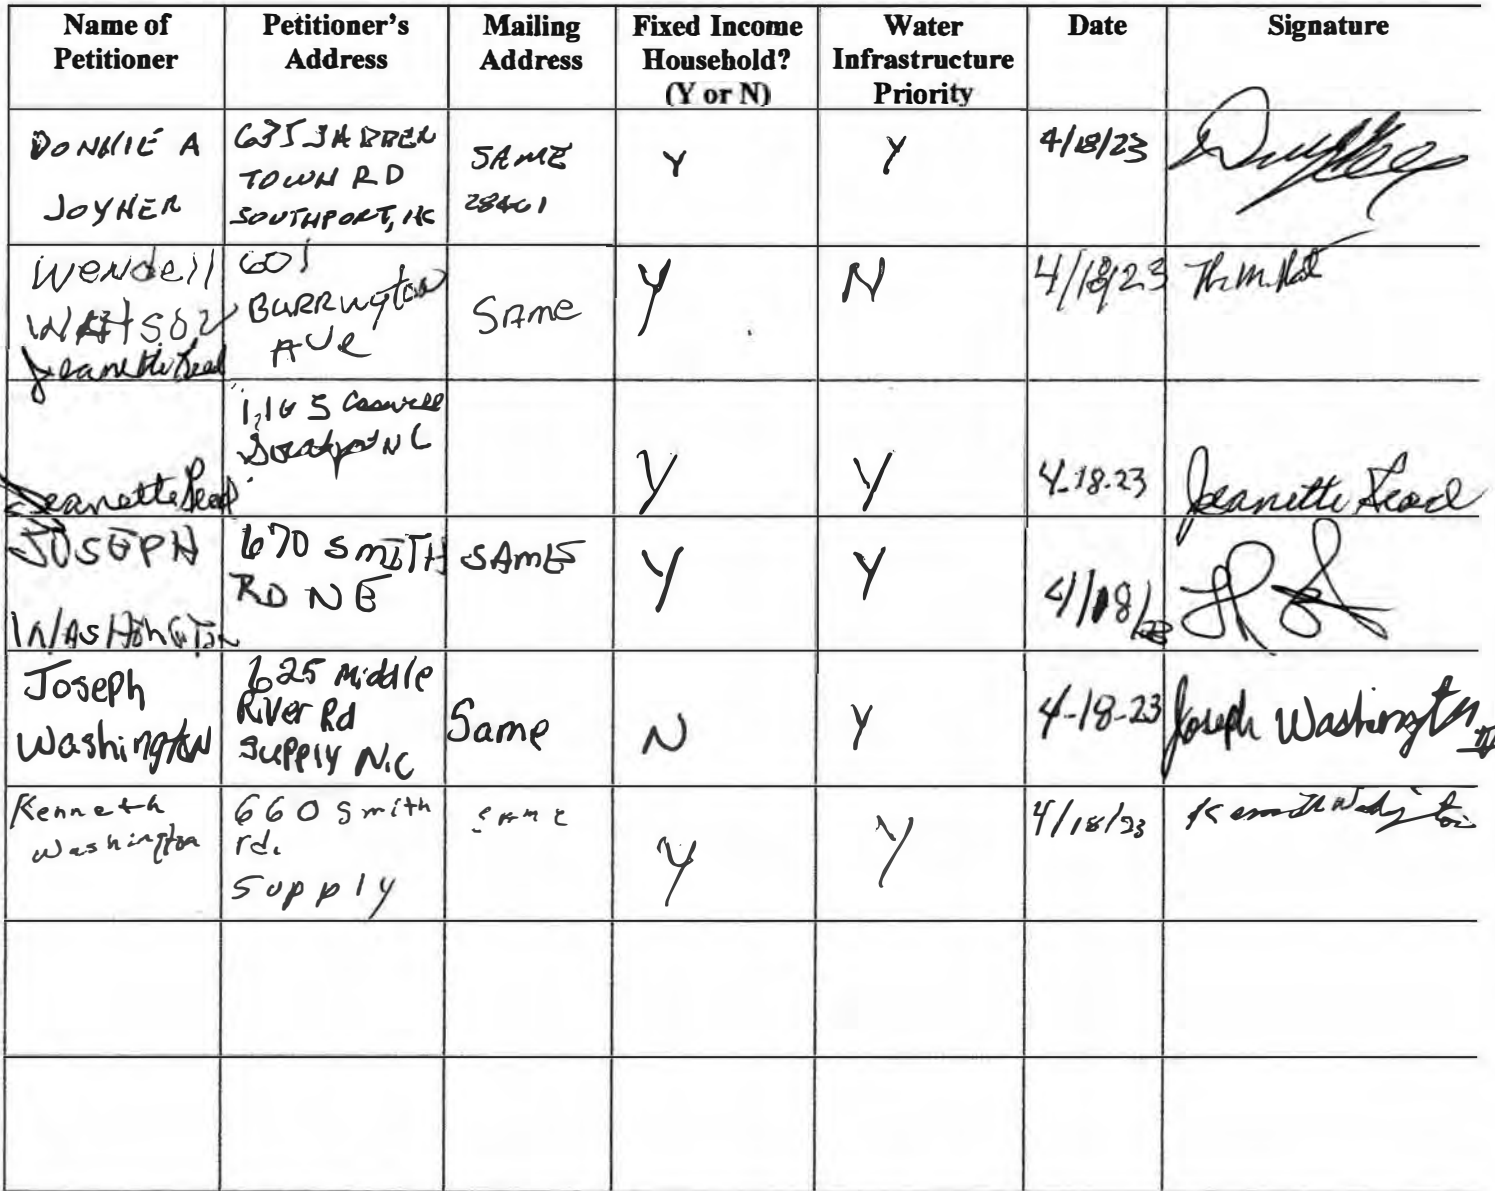 Name of Petitioner	Petitioner's Address	Mailing Address	Fixed Income Household? (Y or N)	Water Infrastructure Priority	Date	Signature
DONNIE A JOYNER	635 JABBEN TOWN RD SOUTHPORT, NC	SAME 28461	Y	Y	4/18/23
Wendell WATSON	601 BURRINGTON AVE	SAME	Y	N	4/18/23
Jeanette Read
Jeanette Read	Caswell NC	Y	Y	4-18-23	Jeanette Read
JOSEPH WASHINGTON	670 SMITH RD NE	SAME	Y	Y	4/18/23
Joseph Washington	625 Middle River Rd Supply N.C	Same	N	Y	4-18-23	Joseph Washington
Kenneth Washington	660 Smith rd. Supply	SAME	Y	Y	4/18/23	Kenneth Washington